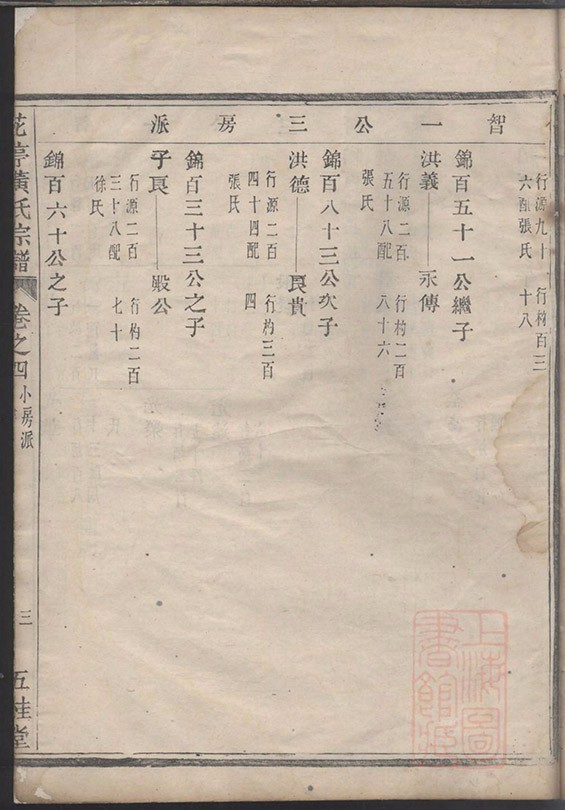 智一公三房派
行源九十 行杓百三
六配張氏 十八
錦百五十一公繼子
洪義 永傳
行源二百 行杓二百
五十八配 八十六
張氏
錦百八十三公次子
洪德 良貴
行源二百 行杓三百
四十四配 四
張氏
錦百三十三公之子
子良 殿公
行源二百 行杓二百
三十八配 七十
徐氏
錦百六十公之子
花亭黃氏宗譜 卷之四 小房派 三 五桂堂
上海圖書館藏